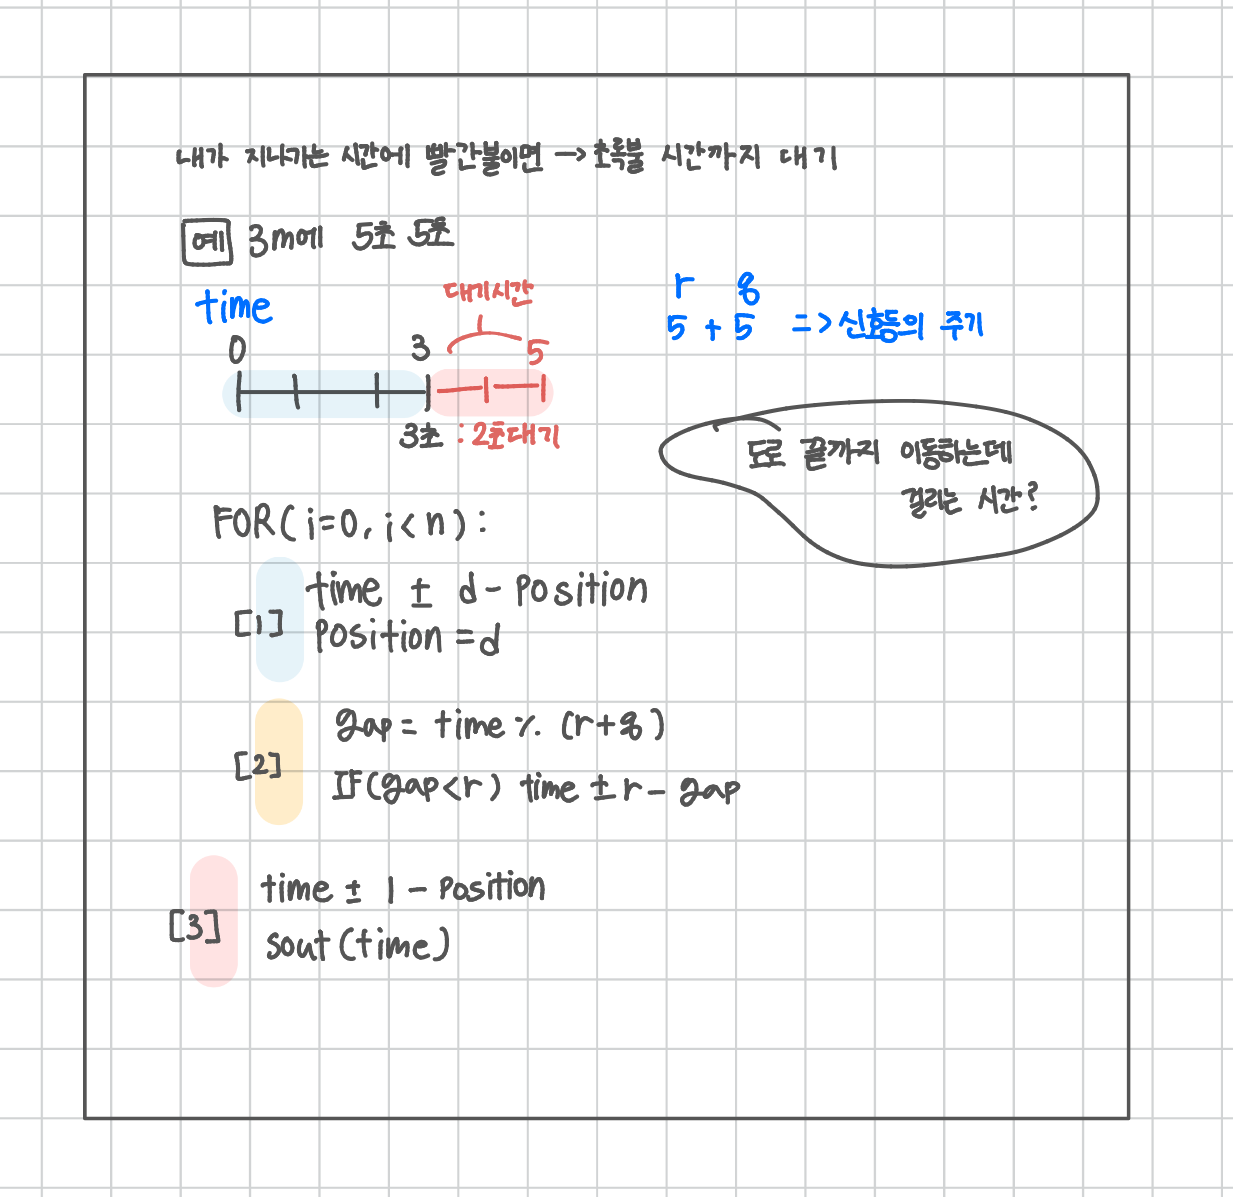 내가 지나가는 시간에 빨간불이면 → 초록불 시간까지 대기
예 3m에 5초 5초
time
대기시간
r g
5 + 5 => 신호등의 주기
0 3 5
3초 : 2초대기
도로 끝까지 이동하는데
걸리는 시간?
FOR(i=0, i<n):
[1]
time ± d - position
position = d
[2]
gap = time % (r+g)
IF(gap<r) time ± r - gap
[3]
time ± l - position
sout(time)